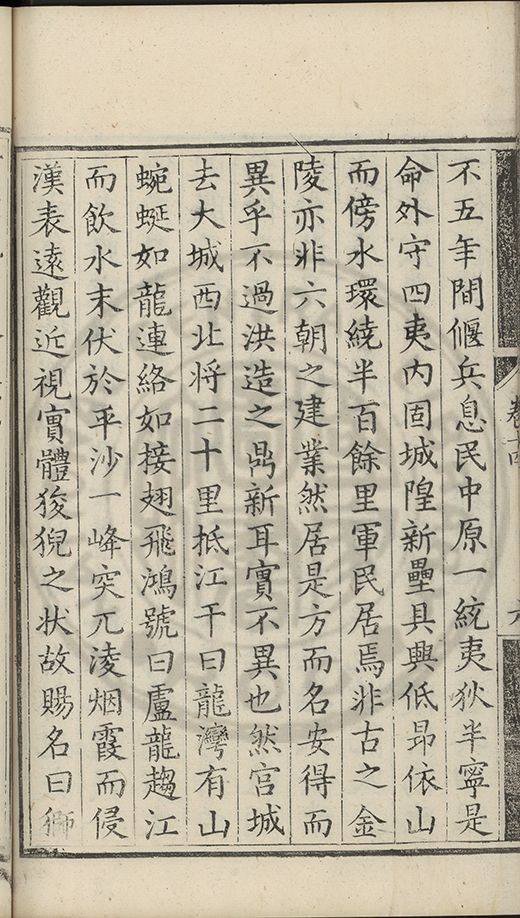 卷十四
六
不五年間偃兵息民中原一統夷狄半寧是
命外守四夷内固城隍新壘具興低昻依山
而傍水環繞半百餘里軍民居焉非古之金
陵亦非六朝之建業然居是方而名安得而
異乎不過洪造之鼎新耳實不異也然宫城
去大城西北将二十里抵江干曰龍灣有山
蜿蜒如龍連絡如接翅飛鴻號曰盧龍趨江
而飲水末伏於平沙一峰突兀凌烟霞而侵
漢表遠觀近視實體狻猊之状故賜名曰獅